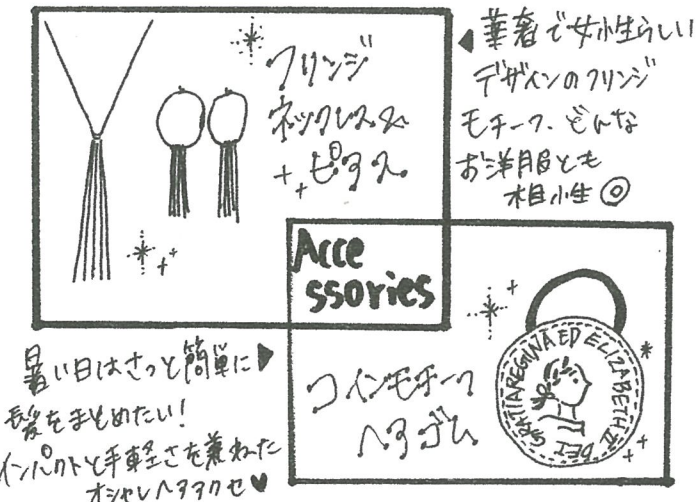 フリンジ
ネックレス&
ピアス
◀華奢で女性らしい
デザインのフリンジ
モチーフ、どんな
お洋服とも
相性◎
Acce
ssories
暑い日はさっと簡単に▶
髪をまとめたい!
インパクトと手軽さを兼ねた
オシャレヘアアクセ♥
コインモチーフ
ヘアゴム
DEI GRATIA REGINA ED ELIZABETH II